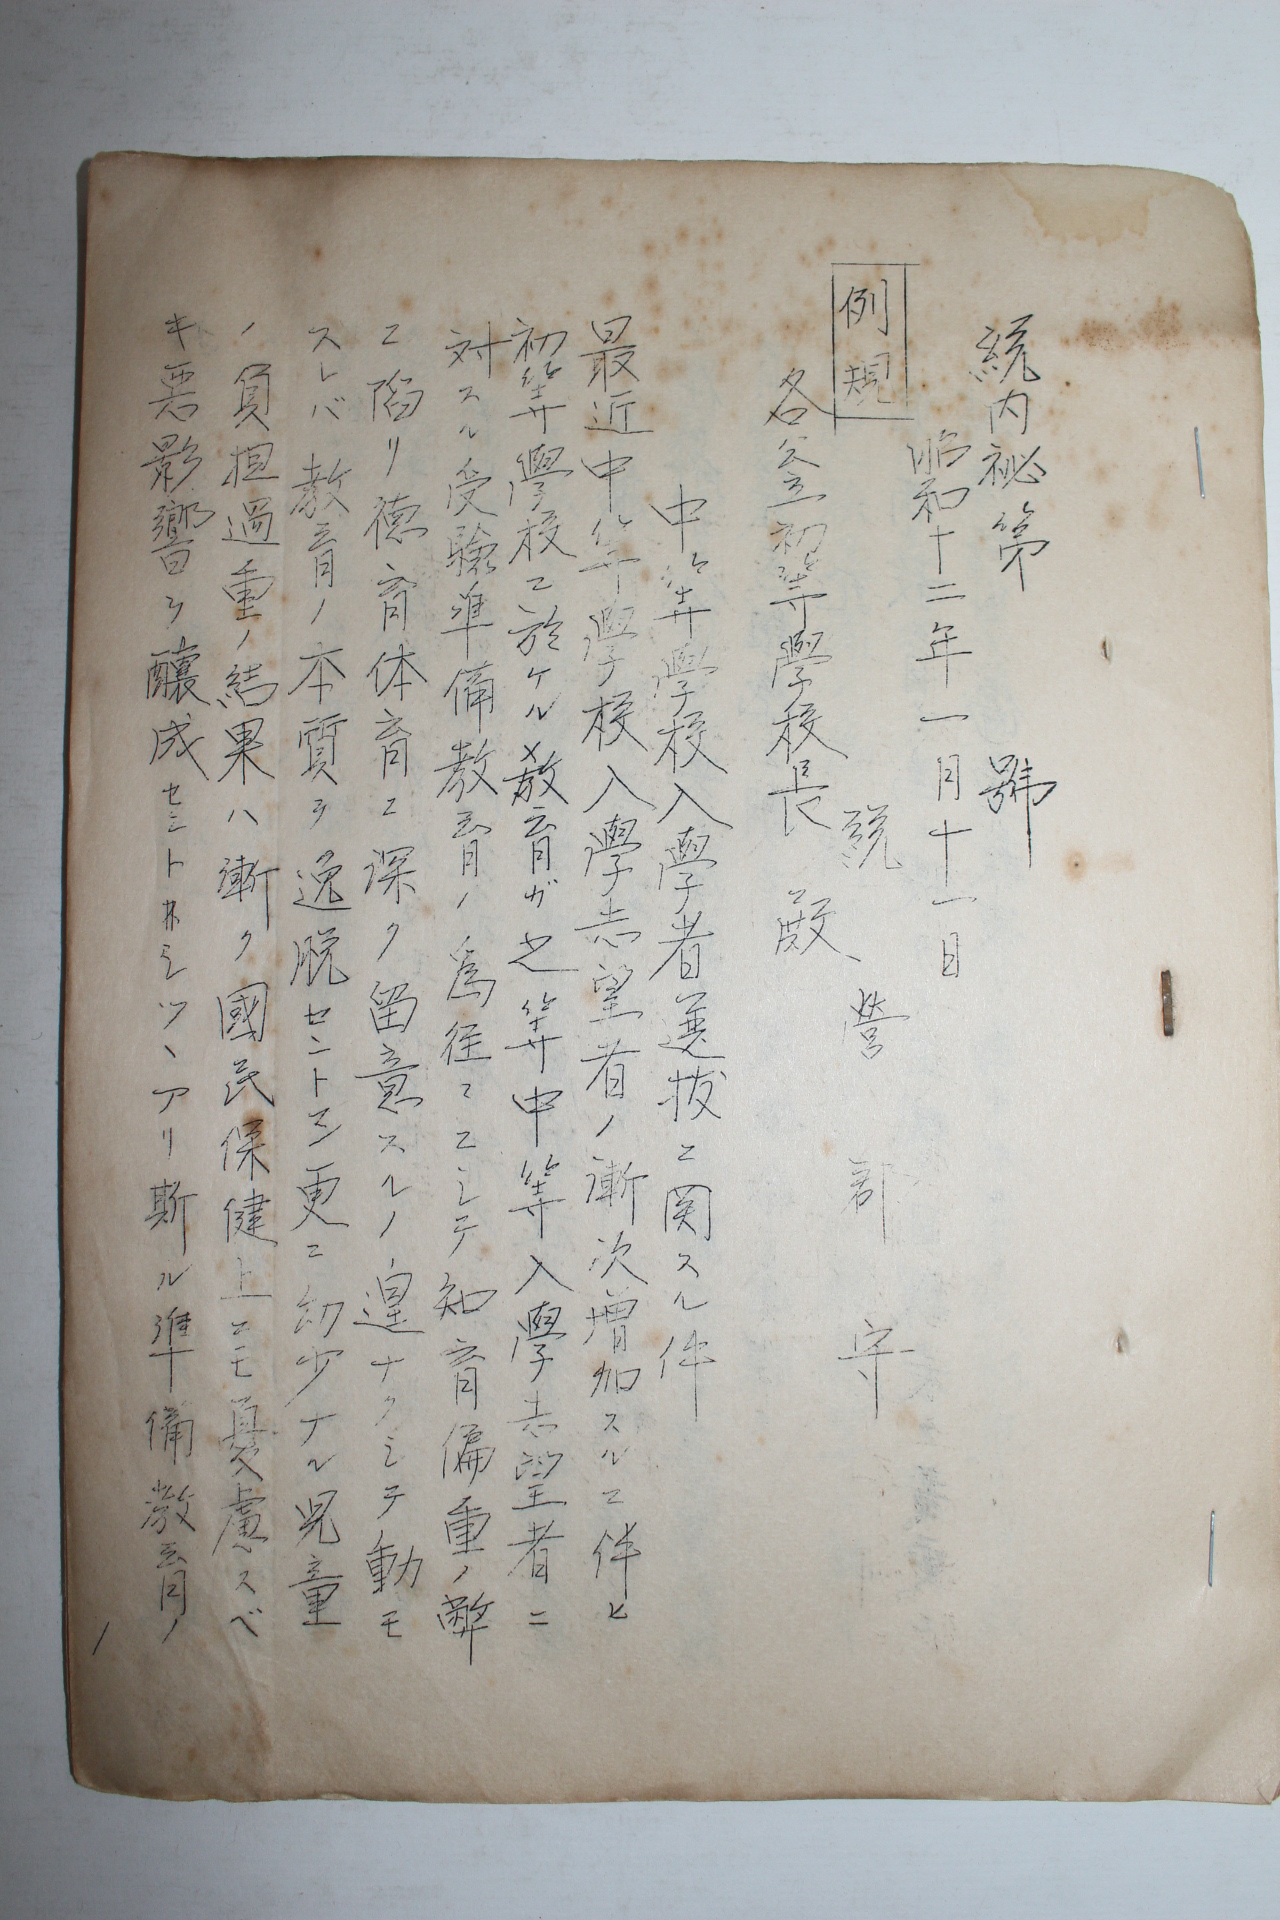 統内祕第　　號
昭和十二年一月十一日
例規
統營郡守
各公立初等學校長殿
中等學校入學者選拔ニ関スル件
最近中等學校入學志望者ノ漸次増加スルニ伴ヒ
初等學校ニ於ケル教育ガ之等中等入學志望者ニ
対スル受驗準備教育ノ為径ニニシテ知育偏重ノ弊
ニ陷リ德育体育ニ深ク留意スルノ遑ナクシテ動モ
スレバ教育ノ本質ヲ逸脱セントシ更ニ幼少ナル児童
ノ負担過重ノ結果ハ漸ク國民保健上ニモ憂慮スベ
キ悪影響ヲ釀成セントサシツヽアリ斯ル準備教育ノ